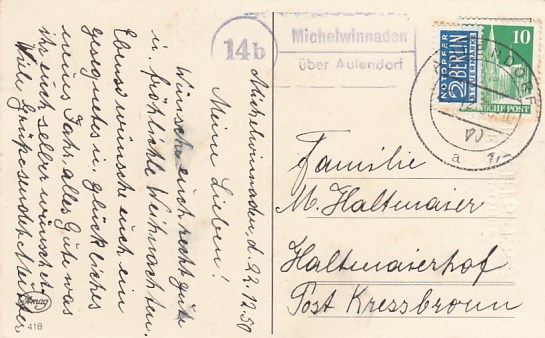 Michelwinnaden, d. 22.12.50
Meine Lieben!
Wünsche euch recht gute
u. fröhliche Weihnachten.
Ebenso wünsche euch ein
gesegnetes u. glückliches
neues Jahr. alles Gute was
ihr euch selber wünschet.
Viele Grüße sendet Mutter
Amag
418
14b
Michelwinnaden
über Aulendorf
NOTOPFER
2 BERLIN
STEUERMARKE
10
DEUTSCHE POST
AULENDORF
a
Familie
M. Haltmaier
Haltmaierhof
Post Kressbronn